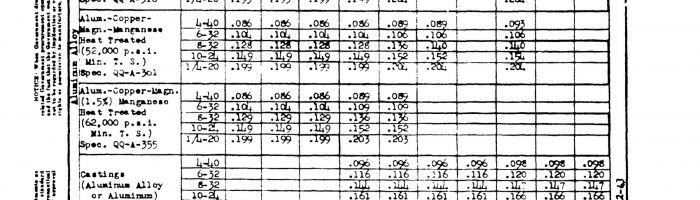 1/4-20 .195 .195 .199 .199
Alum.-Copper- 4-40 .086 .086 .086 .086 .089 .089 .093
Magn.-Manganese 6-32 .104 .104 .104 .104 .106 .106 .106
Heat Treated 8-32 .128 .128 .128 .128 .136 .140 .140
(52,000 p.s.i. 10-24 .149 .149 .149 .149 .152 .152 .154
Min. T. S.) 1/4-20 .199 .199 .199 .199 .201 .204 .204
Spec. QQ-A-361
Alum.-Copper-Magn. 4-40 .086 .086 .086 .086 .089 .089
(1.5%) Manganese 6-32 .104 .104 .104 .104 .109 .109
Heat Treated 8-32 .129 .129 .129 .129 .136 .136
(62,000 p.s.i. 10-24 .149 .149 .149 .149 .152 .152
Min. T. S.) 1/4-20 .199 .199 .199 .199 .203 .203
Spec. QQ-A-355
4-40 .096 .096 .096 .098 .098 .098
Castings 6-32 .116 .116 .116 .120 .120 .120
(Aluminum Alloy 8-32 .144 .144 .144 .147 .147 .147
or Aluminum) 10-24 .161 .161 .161 .166 .166 .166
Aluminum Alloy
2-43